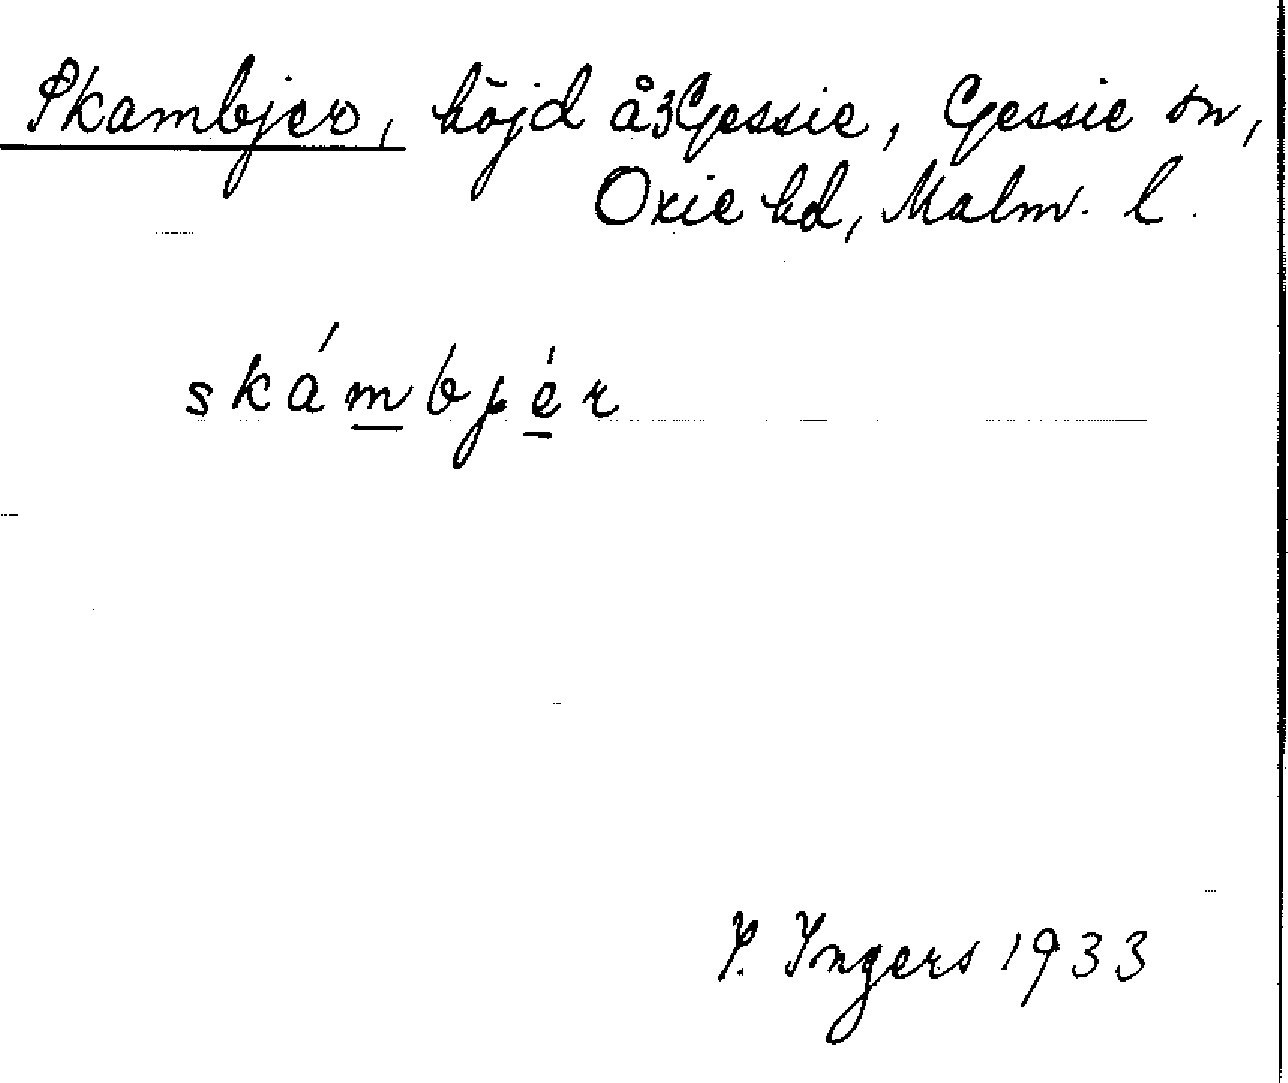 Skambjer, höjd å 3 Gessie, Gessie sn,
Oxie hd, Malm. l.
skámbjér
I. Ingers 1933